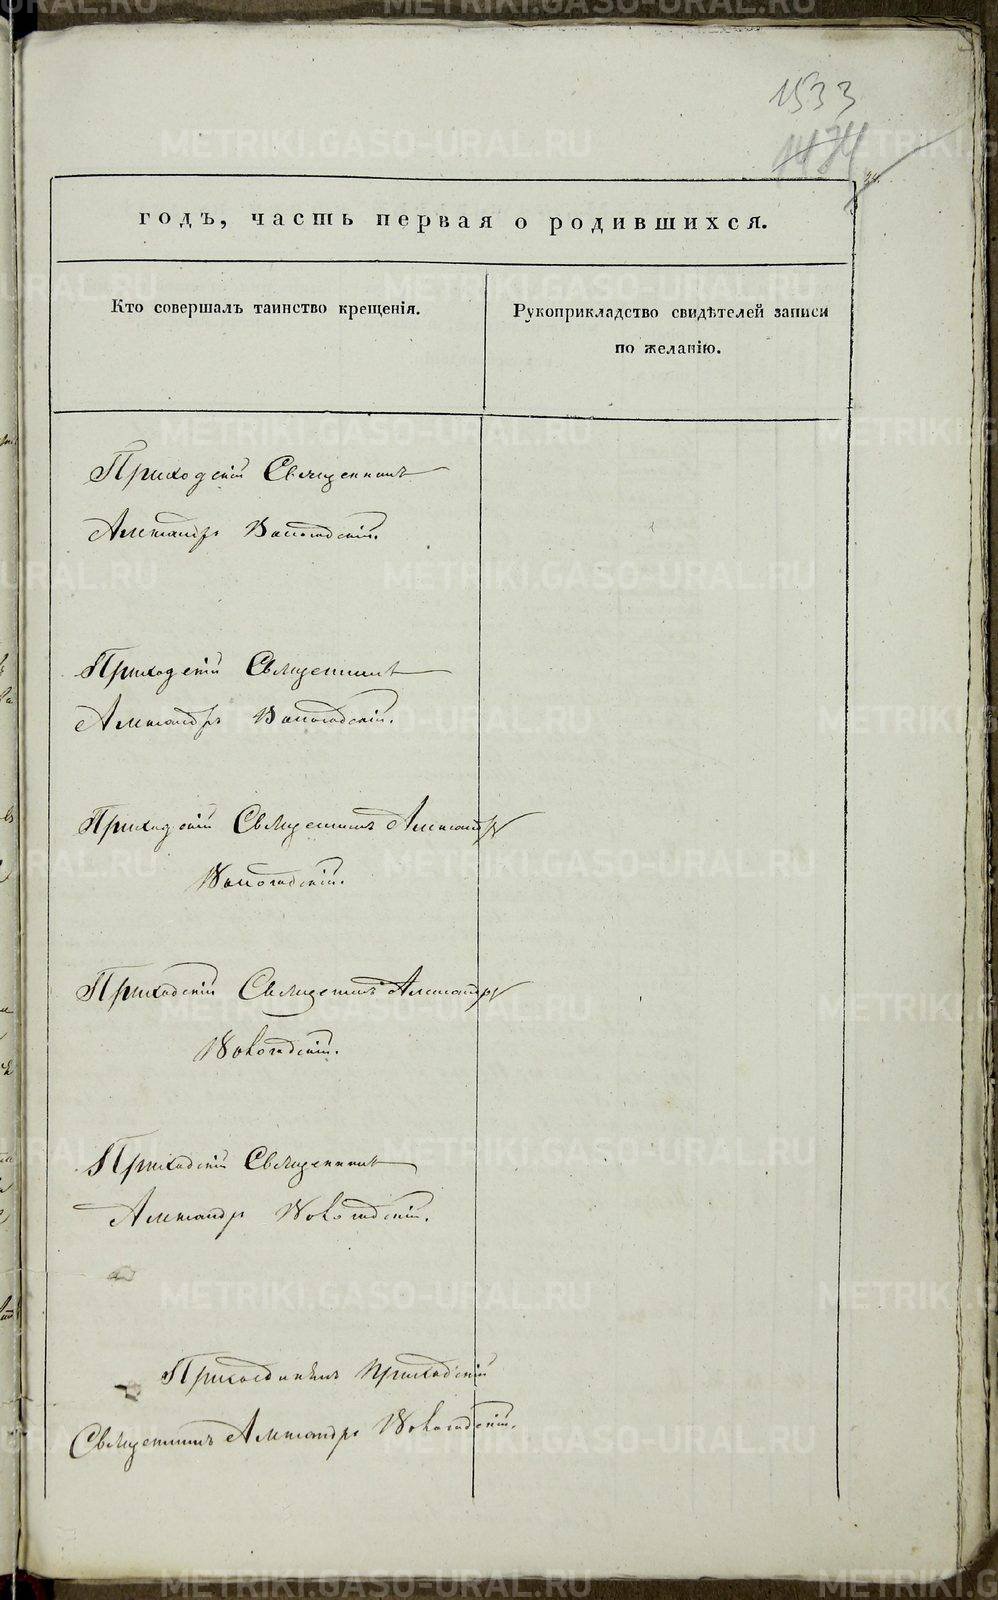 1533
1474
годъ, часть первая о родившихся.
Кто совершалъ таинство крещенія.
Рукоприкладство свидѣтелей записи
по желанію.
Приходскій Священникъ
Александръ Вологодскій.
Приходскій Священникъ
Александръ Вологодскій.
Приходскій Священникъ Александръ
Вологодскій.
Приходскій Священникъ Александръ
Вологодскій.
Приходскій Священникъ
Александръ Вологодскій.
приходскій
Священникъ Александръ Вологодскій.
METRIKI.GASO-URAL.RU